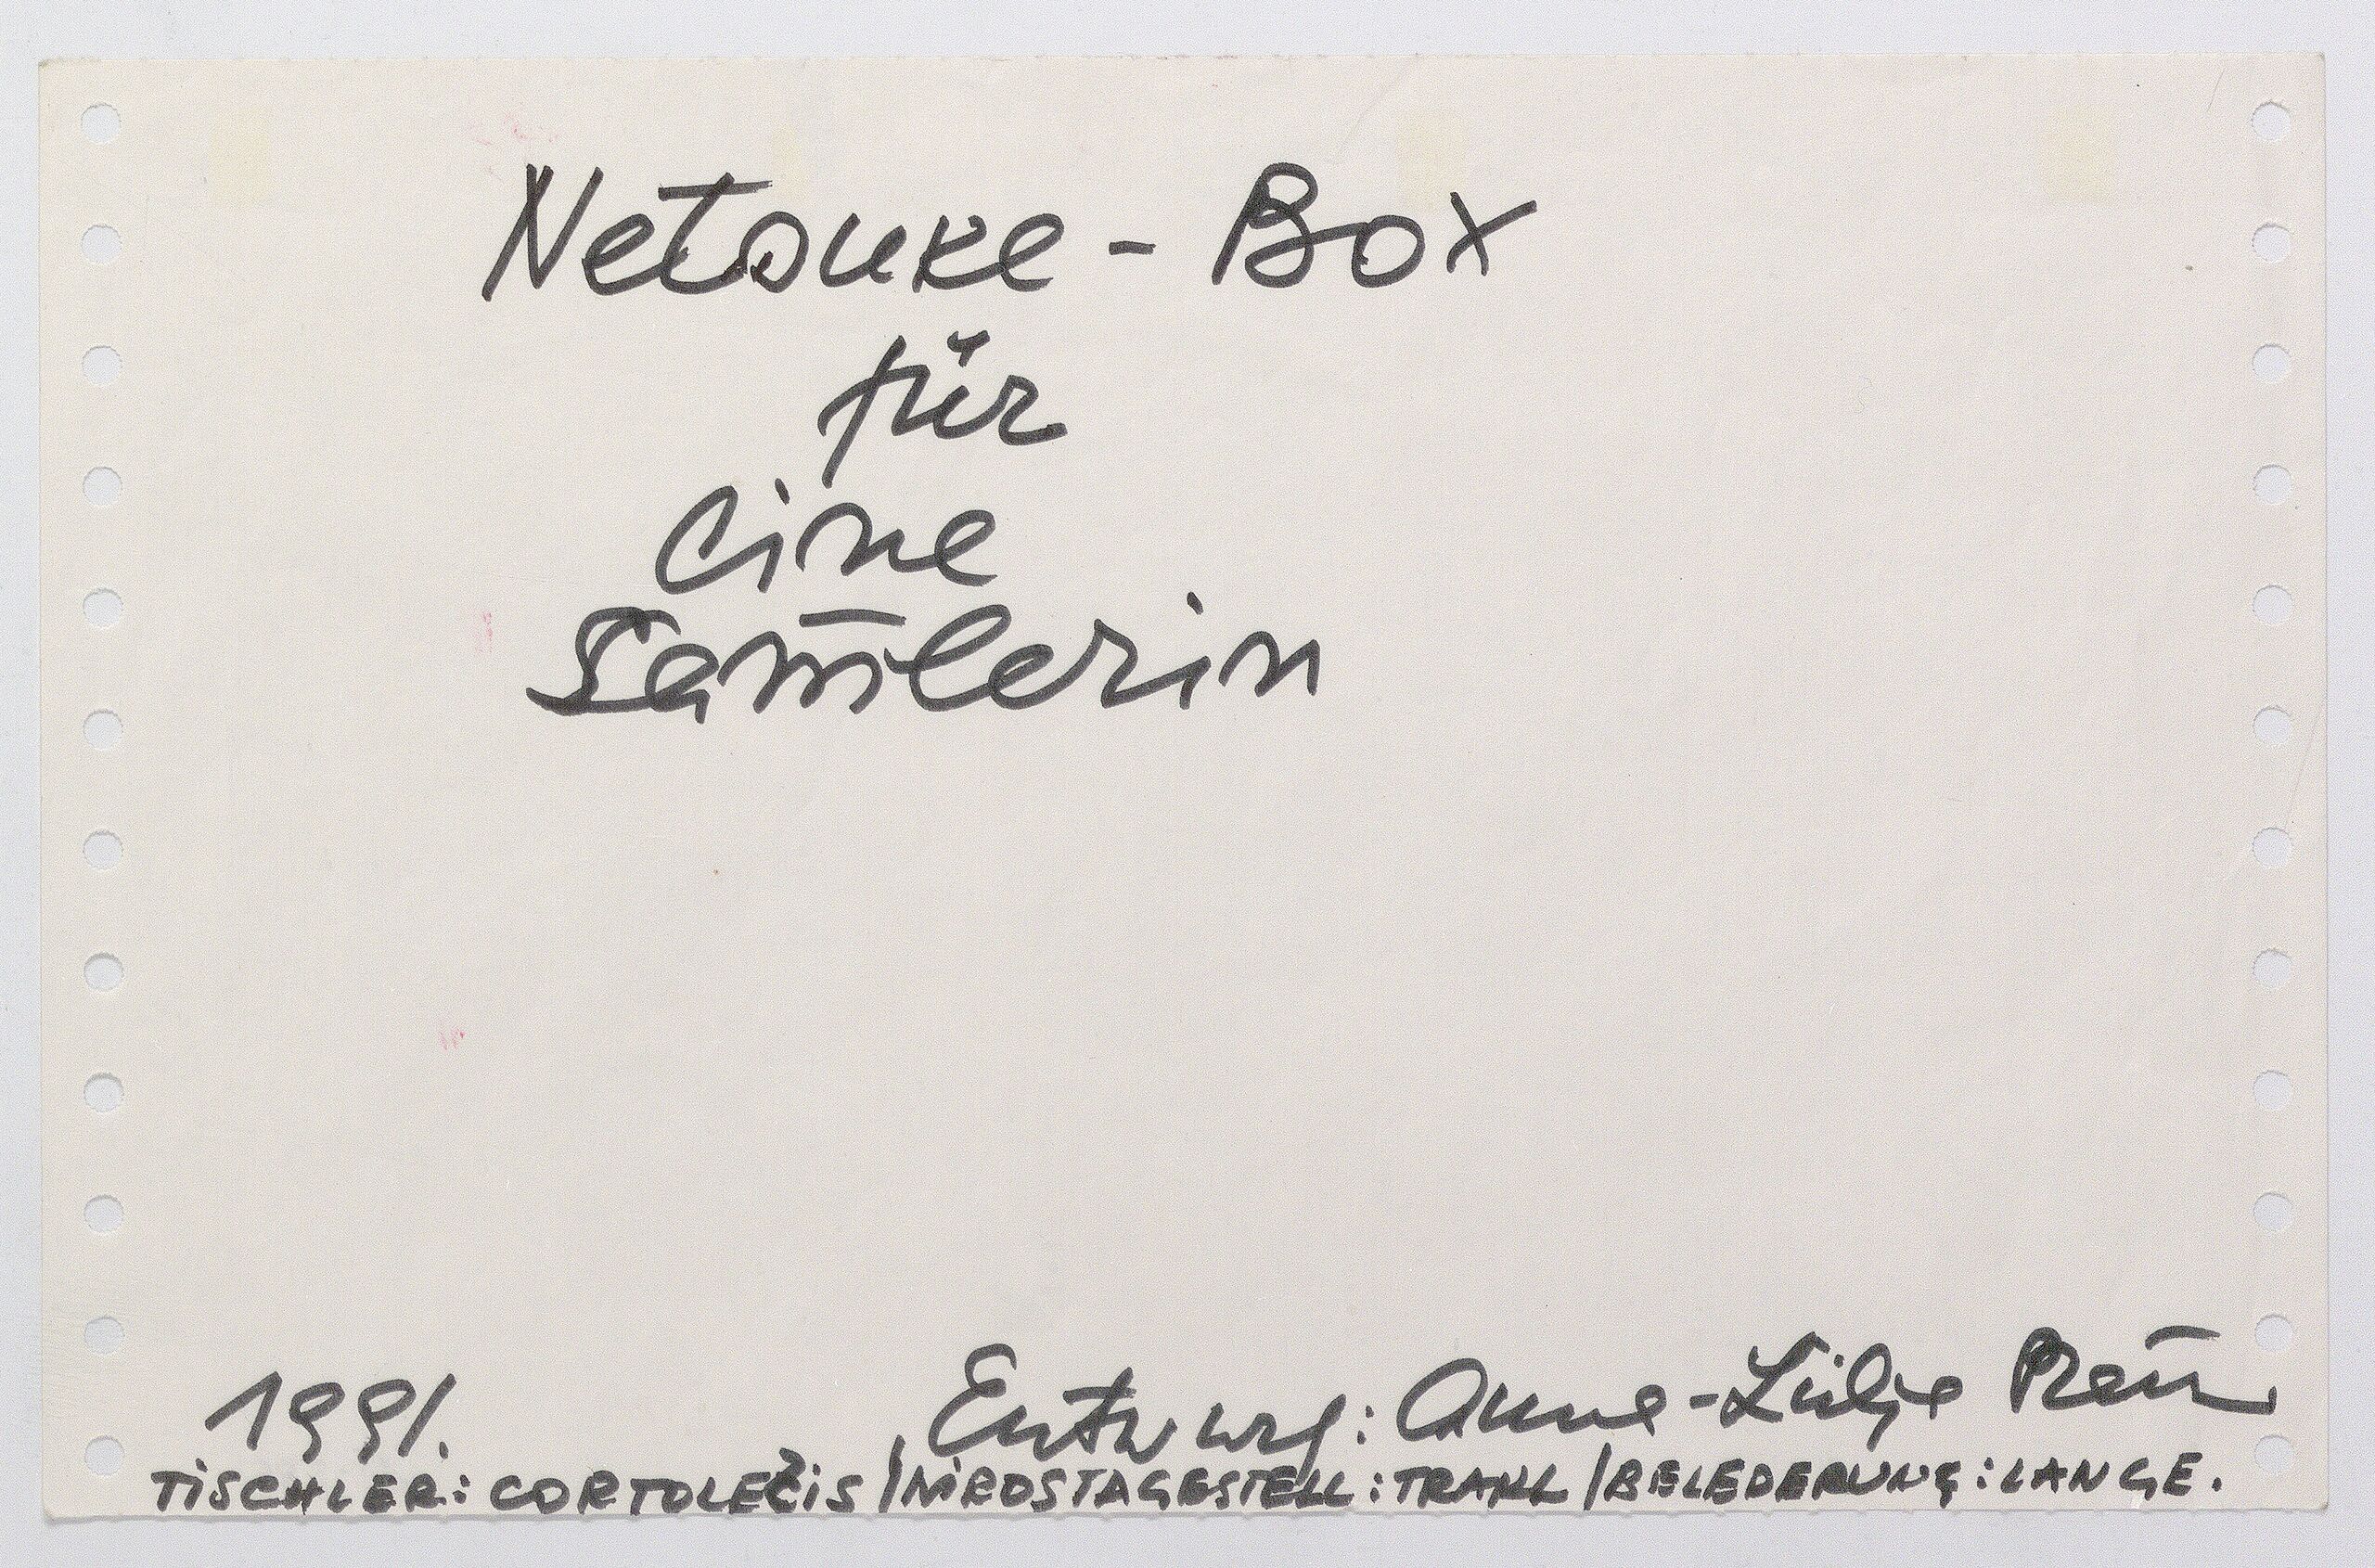 Netsuke - Box
für
eine
Sam̅lerin
1991. Entwurf: Anne-Lübje
TISCHLER: CORTOLEČIS / NIROSTAGESTELL: TRAKL / BELEDERUNG: LANGE.